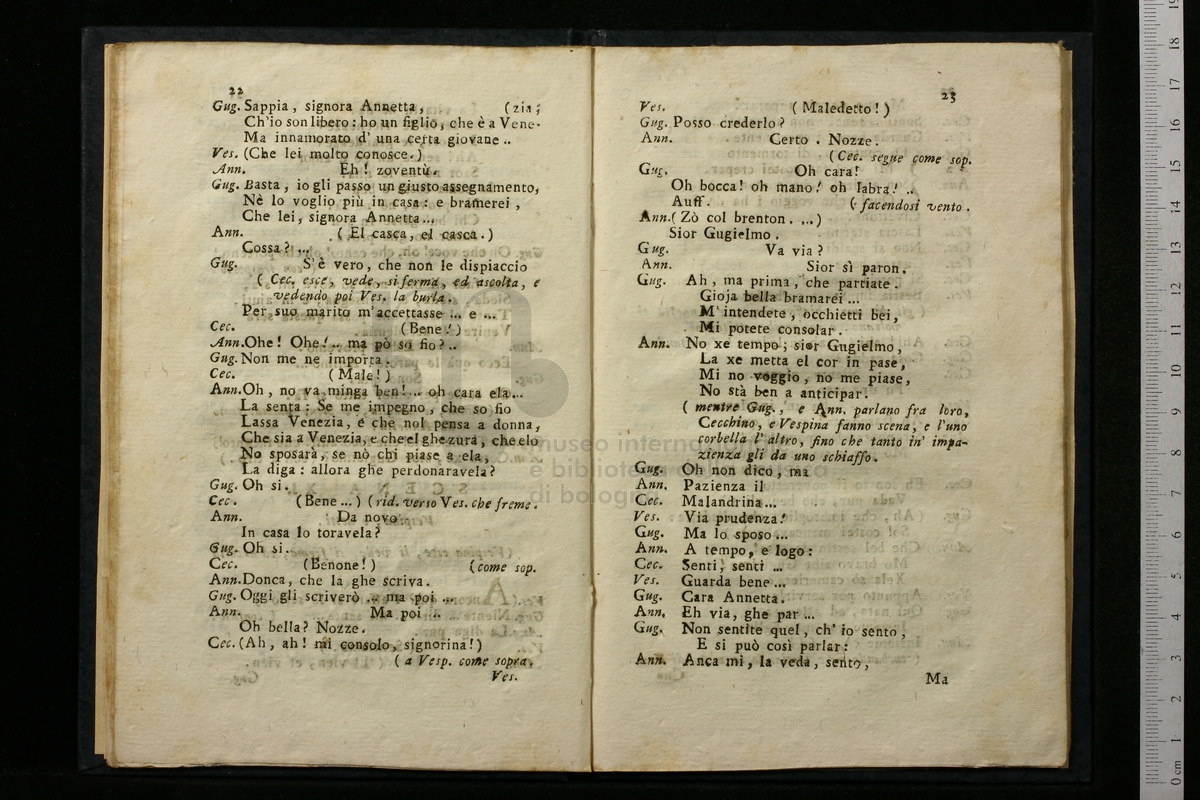 22
Gug. Sappia, signora Annetta, (zia;
Ch'io son libero: ho un figlio, che è a Vene-
Ma innamorato d' una certa giovane ..
Ves. (Che lei molto conosce.)
Ann. Eh! zoventù.
Gug. Basta, io gli passo un giusto assegnamento,
Nè lo voglio più in casa: e bramerei,
Che lei, signora Annetta...
Ann. (El casca, el casca.)
Cossa? ...
Gug. S'è vero, che non le dispiaccio
(Cec. esce, vede, si ferma, ed ascolta, e
vedendo poi Ves. la burla.
Per suo marito m'accettasse ... e ...
Cec. (Bene!)
Ann. Ohe! Ohe!.. ma pò so fio?..
Gug. Non me ne importa.
Cec. (Male!)
Ann. Oh, no va minga ben!... oh cara ela...
La senta: Se me impegno, che so fio
Lassa Venezia, e che nol pensa a donna,
Che sia a Venezia, e che el ghe zura, che elo
No sposarà, se nò chi piase a ela,
La diga: allora ghe perdonaravela?
Gug. Oh si.
Cec. (Bene...) (rid. verso Ves. che freme.
Ann. Da novo.
In casa lo toravela?
Gug. Oh si.
Cec. (Benone!) (come sop.
Ann. Donca, che la ghe scriva.
Gug. Oggi gli scriverò ... ma poi ...
Ann. Ma poi ...
Oh bella? Nozze.
Cec. (Ah, ah! mi consolo, signorina!)
(a Vesp. come sopra.
Ves.
23
Ves. (Maledetto!)
Gug. Posso crederlo?
Ann. Certo. Nozze.
(Cec. segue come sop.
Gug. Oh cara!
Oh bocca! oh mano! oh labra! ..
Auff. (facendosi vento.
Ann. (Zò col brenton. ...)
Sior Gugielmo.
Gug. Va via?
Ann. Sior sì paron.
Gug. Ah, ma prima, che partiate.
Gioja bella bramarei ...
M'intendete, occhietti bei,
Mi potete consolar.
Ann. No xe tempo; sior Gugielmo,
La xe metta el cor in pase,
Mi no voggio, no me piase,
No stà ben a anticipar.
(mentre Gug., e Ann. parlano fra loro,
Cecchino, e Vespina fanno scena, e l'uno
corbella l' altro, fino che tanto in' impa-
zienza gli da uno schiaffo.
Gug. Oh non dico, ma
Ann. Pazienza il
Cec. Malandrina...
Ves. Via prudenza!
Gug. Ma lo sposo...
Ann. A tempo, e logo:
Cec. Senti, senti ...
Ves. Guarda bene...
Gug. Cara Annetta.
Ann, Eh via, ghe par...
Gug. Non sentite quel, ch' io sento,
E si può così parlar:
Ann. Anca mi, la veda, sento,
Ma